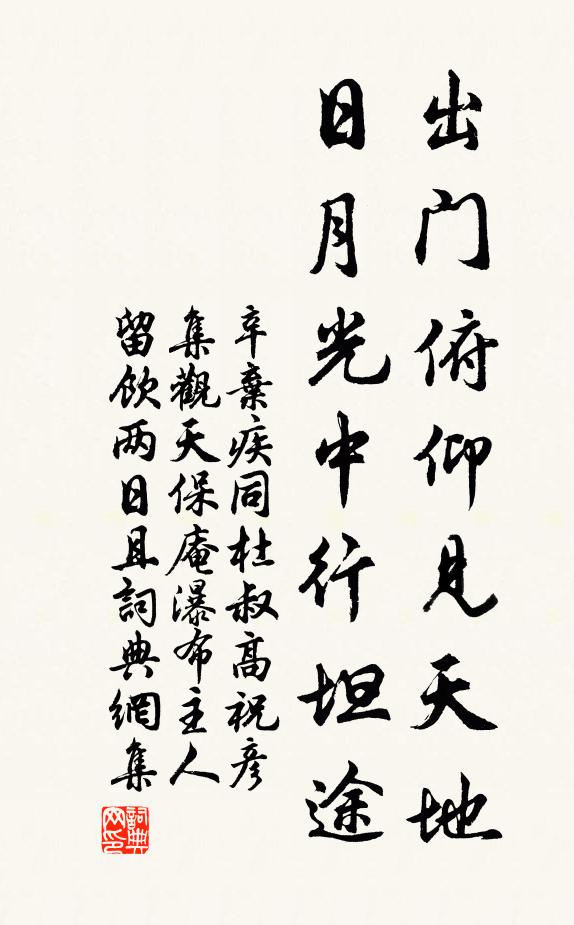 出门俯仰见天地
日月光中行坦途
辛棄疾同杜叔高祝彦
集觀天保庵瀑布主人
留饮两日且詞典網集
詞典
网印